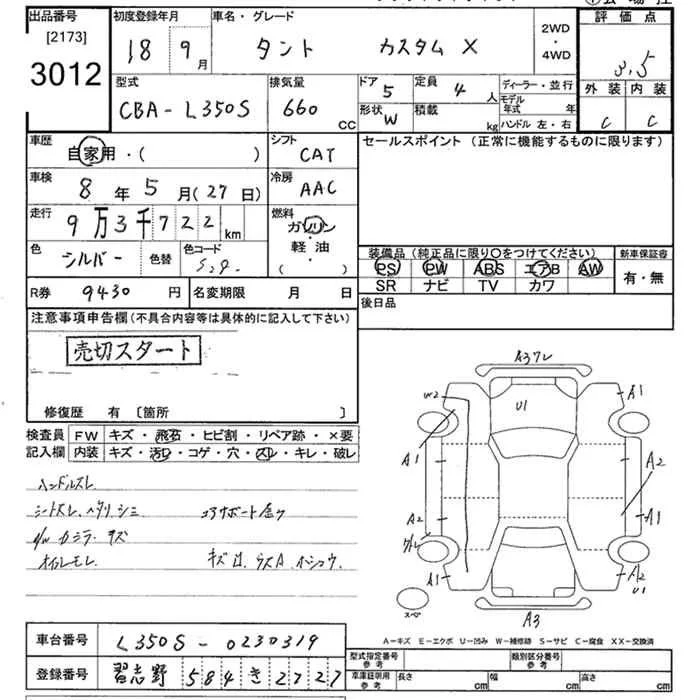 出品番号 初度登録年月 車名・グレード 2WD・4WD 評価点
[2173] 3012 18 9月 タント カスタム X 3,5
型式 排気量 ドア 5 定員 4人 ディーラー・並行 外装 内装
CBA-L350S 660 CC 形状 W 積載 kg モデル年式 年 ハンドル 左・右 C C
車歴 自家用・( ) シフト CAT セールスポイント (正常に機能するものに限ります)
車検 8年 5月(27日) 冷房 AAC
走行 9万3千722km 燃料 ガソリン・軽・油 ( )
色 シルバー 色替 色コード S29. 装備品(純正品に限り〇をつけてください) 新車保証書
PS PW ABS エアB AW 有・無
SR ナビ TV カワ
R券 9430円 名変期限 月 日 後日品
注意事項申告欄(不具合内容等は具体的に記入して下さい)
売切スタート
修復歴 有 [箇所 ]
検査員 FW キズ・飛石・ヒビ割・リペア跡・×要
記入欄 内装 キズ・汚レ・コゲ・穴・スレ・キレ・破レ
ハンドルスレ
シートスレ、ヘタリ、シミ コアサポート
キズ
オイルモレ
A3
U1
A1
A1
A2
A2
A1
A1
A2
U1
スペア
A3
A-キズ E-エクボ U-凹み W-補修跡 S-サビ C-腐食 XX-交換済
車台番号 L350S-0230319
登録番号 習志野 584 き 2727
型式指定番号 参考 類別区分番号 参考
車庫証明用 参考 長さ cm 幅 cm 高さ cm